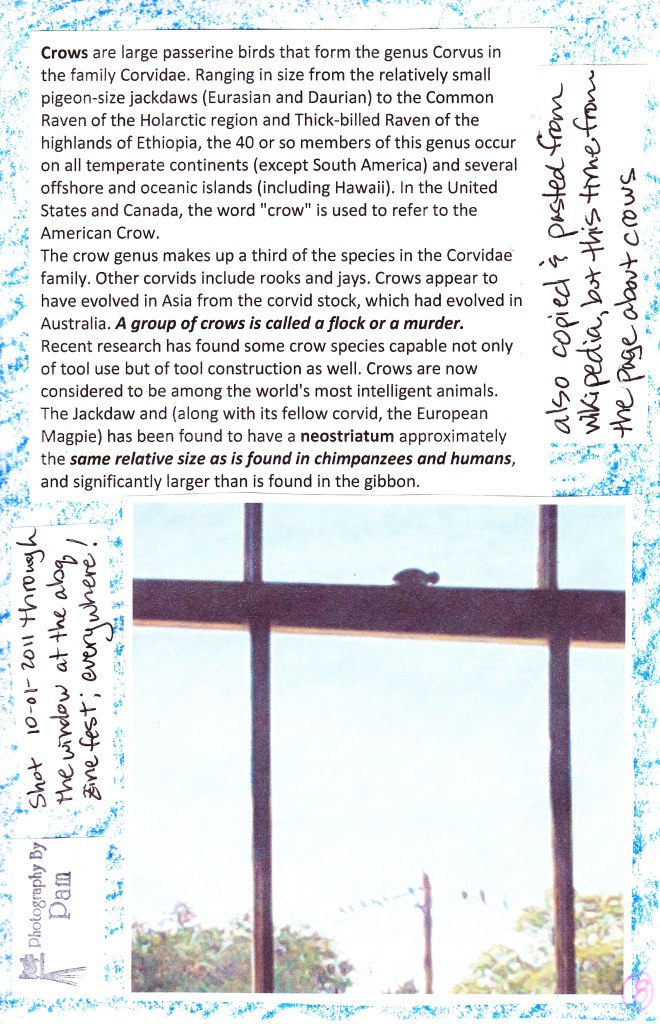 Crows are large passerine birds that form the genus Corvus in
the family Corvidae. Ranging in size from the relatively small
pigeon-size jackdaws (Eurasian and Daurian) to the Common
Raven of the Holarctic region and Thick-billed Raven of the
highlands of Ethiopia, the 40 or so members of this genus occur
on all temperate continents (except South America) and several
offshore and oceanic islands (including Hawaii). In the United
States and Canada, the word "crow" is used to refer to the
American Crow.
The crow genus makes up a third of the species in the Corvidae
family. Other corvids include rooks and jays. Crows appear to
have evolved in Asia from the corvid stock, which had evolved in
Australia. A group of crows is called a flock or a murder.
Recent research has found some crow species capable not only
of tool use but of tool construction as well. Crows are now
considered to be among the world's most intelligent animals.
The Jackdaw and (along with its fellow corvid, the European
Magpie) has been found to have a neostriatum approximately
the same relative size as is found in chimpanzees and humans,
and significantly larger than is found in the gibbon.
also copied & pasted from
wikipedia, but this time from
the page about crows
Shot 10-01-2011 through
the window at the abq
zine fest; everywhere!
Photography By
Pam